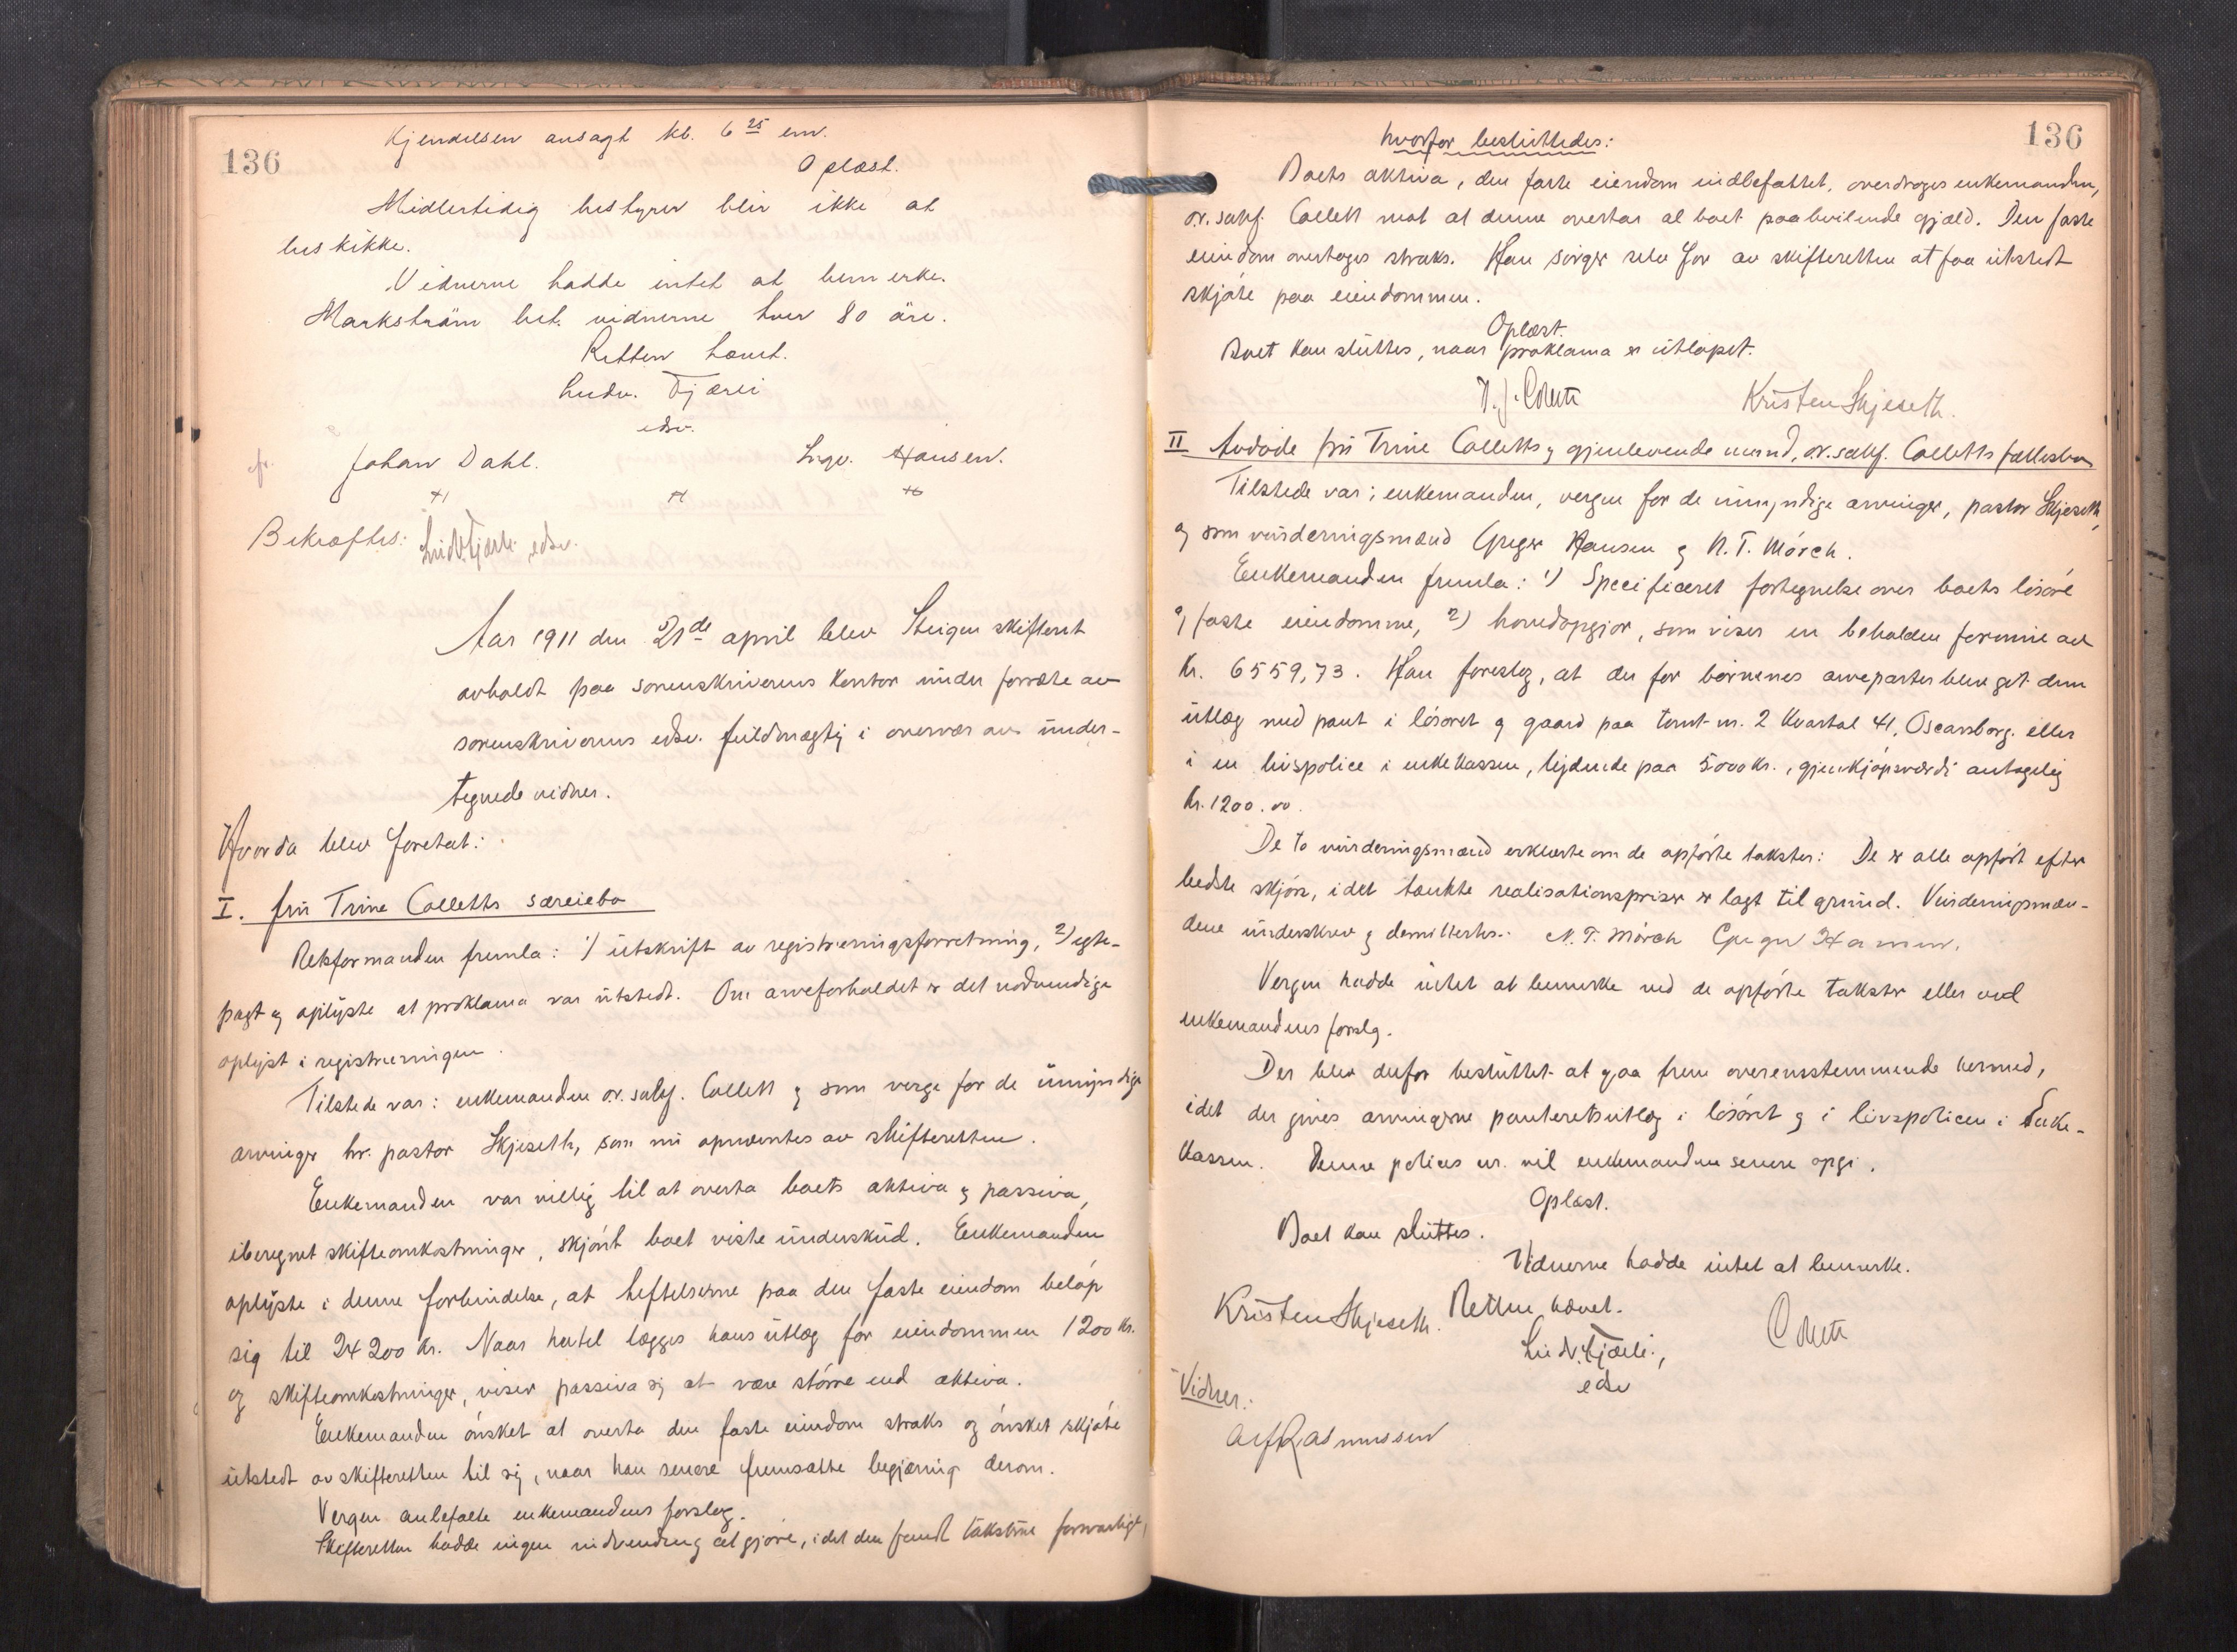 136
Kjendelsen avsagt kl. 6 25 em.
Oplæst.
Midlertidig bestyrer blir ikke at
beskikke.
Vidnerne hadde intet at bemerke.
Markström bet. vidnerne hver 80 øre.
Retten hævet.
Ludv. Fjærli
edsv.
Johan Dahl. Ingv. Hansen.
Bekræftes: Ludv. Fjærli edsv.
Aar 1911 den 21de april blev Steigen skifteret
avholdt paa sorenskriverens kontor under forsæte av
sorenskriverens edsv. fuldmægtig i overvær av under-
tegnede vidner.
Hvorda blev foretat:
I. fru Trine Colletts særeiebo
Retsformanden fremla: 1) utskrift av registreringsforretning, 2) egte-
pagt og oplyste at proklama var utstedt. Om arveforholdet er det nødvendige
oplyst i registreringen.
Tilstede var: enkemanden o.r. sakf. Collett og som verge for de umyndige
arvinger hr. pastor Skjeseth, som nu opnævntes av skifteretten.
Enkemanden var villig til at overta boets aktiva og passiva,
iberegnet skifteomkostninger, skjønt boet viste underskud. Enkemanden
oplyste i denne forbindelse, at heftelserne paa den faste eiendom beløp
sig til 24200 kr. Naar hertil lægges hans utlæg for eiendommen 1200 kr.
og skifteomkostninger, viser passiva sig at være større end aktiva.
Enkemanden ønsket at overta den faste eiendom straks og ønsket skjøte
utstedt av skifteretten til sig, naar han senere fremsatte begjæring derom.
Vergen anbefalte enkemandens forslag.
Skifteretten hadde ingen indvending at gjøre, idet den fandt taksterne forsvarlige,
136
hvorfor besluttedes:
Boets aktiva, den faste eiendom indbefattet, overdrages enkemanden,
o.r. sakf. Collett mot at denne overtar al boet paahvilende gjæld. Den faste
eiendom overtages straks. Han sørger selv for av skifteretten at faa utstedt
skjøte paa eiendommen.
Oplæst.
Boet kan sluttes, naar proklama er utløpet.
Collett Kristen Skjeseth.
II Avdøde fru Trine Colletts og gjenlevende mand, o.r. sakf. Colletts fællesbo
Tilstede var: enkemanden, vergen for de umyndige arvinger, pastor Skjeseth,
og som vurderingsmænd Greger Hansen og N. T. Mørch.
Enkemanden fremla: 1) Specificeret fortegnelse over boets løsøre
og faste eiendomme, 2) hovedopgjør, som viser en beholden formue av
kr. 6559,73. Han foreslog, at der for børnenes arveparter blev git dem
utlæg med pant i løsøret og gaard paa tomt nr. 2 Kvartal 41, Oscarsborg. eller
i en livspolice i enkekassen, lydende paa 5000 kr., gjenkjøpsværdi antagelig
kr. 1200.00.
De to vurderingsmænd erklærte om de opførte takster: De er alle opført efter
bedste skjøn, idet tænkte realisationspriser er lagt til grund. Vurderingsmæn-
dene underskrev og demittertes. N. T. Mørch Greger Hansen.
Vergen hadde intet at bemerke ved de opførte takster eller ved
enkemandens forslag.
Der blev derfor besluttet at gaa frem overensstemmende hermed,
idet der gives arvingerne panteretsutlæg i løsøret og i livspolicen i Enke-
kassen. Denne polices nr. vil enkemanden senere opgi.
Oplæst.
Boet kan sluttes.
Vidnerne hadde intet at bemerke.
Kristen Skjeseth. Retten hævet. Collett
Ludv. Fjærli.,
edsv
Vidner:
Alf Rasmussen